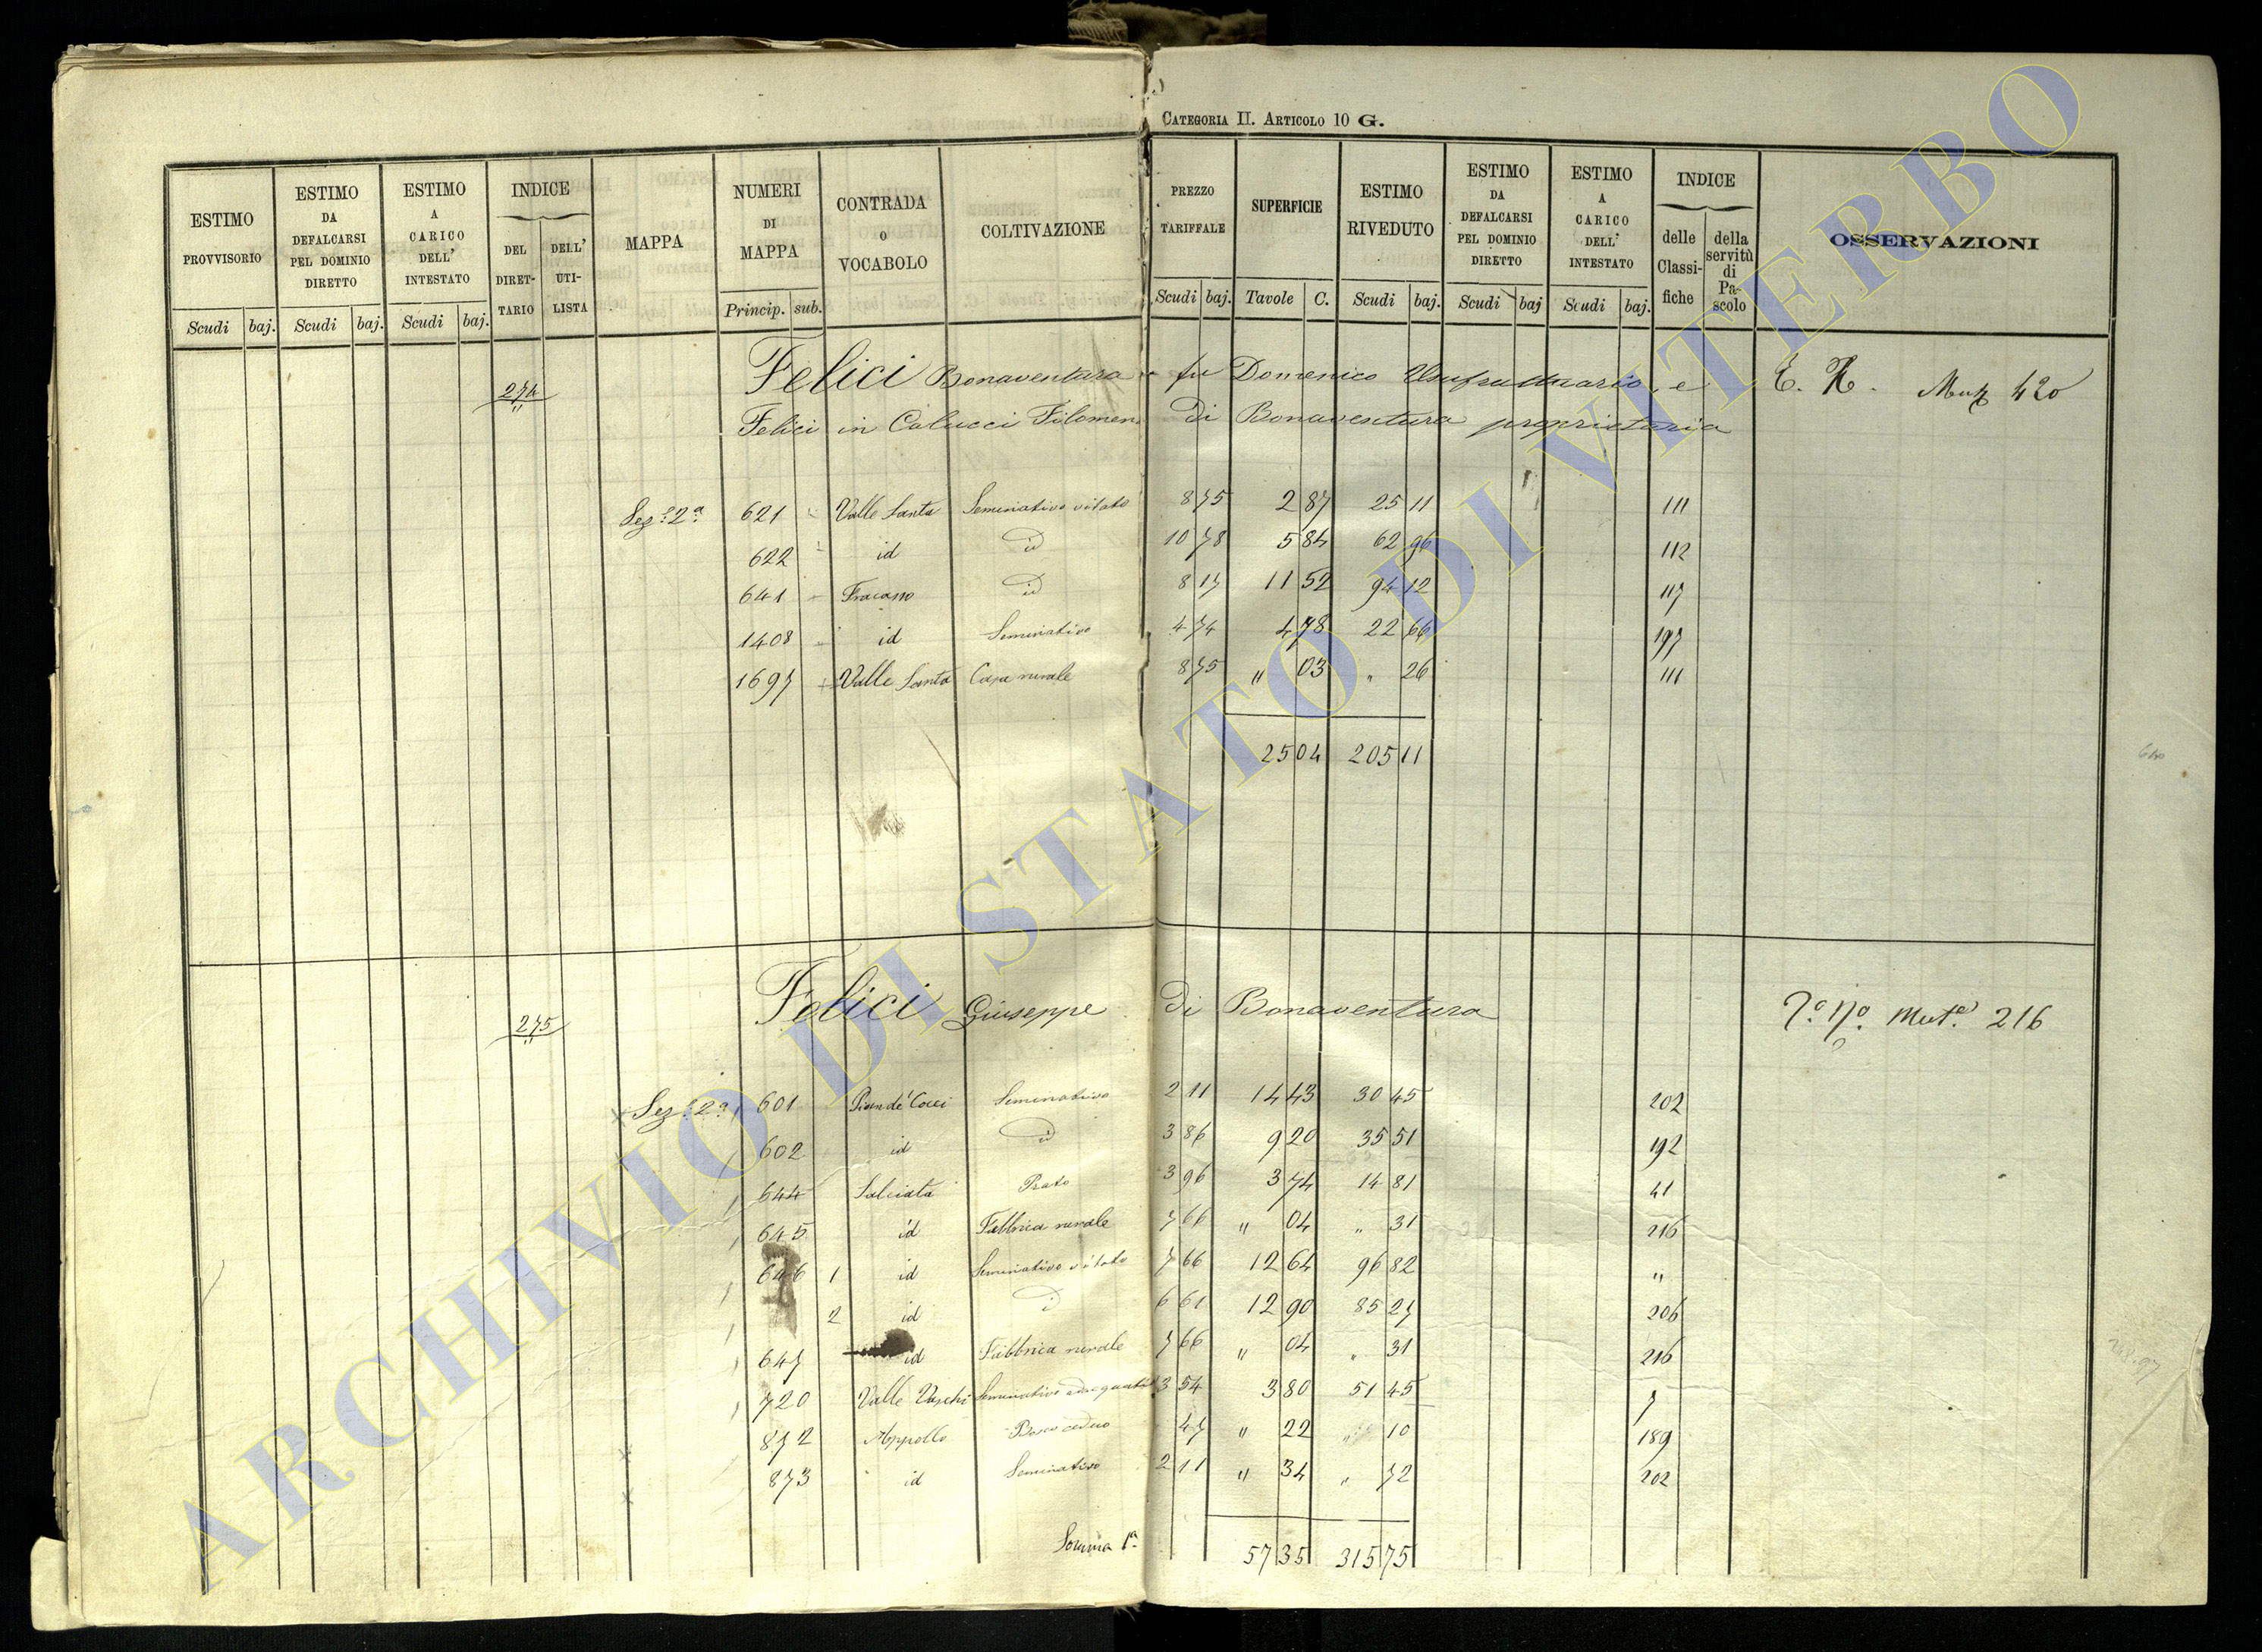 CATEGORIA II. ARTICOLO 10 G.
ESTIMO PROVVISORIO | ESTIMO DA DEFALCARSI PEL DOMINIO DIRETTO | ESTIMO A CARICO DELL' INTESTATO | INDICE | MAPPA | NUMERI DI MAPPA | CONTRADA O VOCABOLO | COLTIVAZIONE | PREZZO TARIFFALE | SUPERFICIE | ESTIMO RIVEDUTO | ESTIMO DA DEFALCARSI PEL DOMINIO DIRETTO | ESTIMO A CARICO DELL' INTESTATO | INDICE | OSSERVAZIONI
DEL DIRET-TARIO | DELL' UTI-LISTA | delle Classi-fiche | della servitù di Pa-scolo
Scudi baj. | Scudi baj. | Scudi baj. | Princip. sub. | Scudi baj. | Tavole C. | Scudi baj. | Scudi baj | Scudi baj.
274 Felici Bonaventura fu Domenico Usufruttuario, e E. R. 420
Felici in Colucci Filomena di Bonaventura proprietaria
Sez.e 2a 621 Valle Santa Seminativo vitato 8 75 2 87 25 11 111
622 id id 10 78 5 84 62 96 112
641 Fracasso id 8 17 11 52 94 12 117
1408 id Seminativo 4 74 4 78 22 66 197
1697 Valle Santa Casa rurale 8 75 " 03 " 26 111
25 04 205 11
275 Felici Giuseppe di Bonaventura Muta 216
Sez.e 2a 601 Pian de' Cocci Seminativo 2 11 14 43 30 45 202
602 id id 3 86 9 20 35 51 192
644 Salciata Prato 3 96 3 74 14 81 41
645 id Fabbrica rurale 7 66 " 04 " 31 216
646 1 id Seminativo vitato 7 66 12 64 96 82 "
2 id id 6 61 12 90 85 27 206
647 id Fabbrica rurale 7 66 " 04 " 31 216
720 Valle Seminativo 3 54 3 80 51 45 7
872 Appollo Bosco ceduo 47 " 22 " 10 189
873 id Seminativo 2 11 " 34 " 72 202
Somma 1a 57 35 315 75
ARCHIVIO DI STATO DI VITERBO